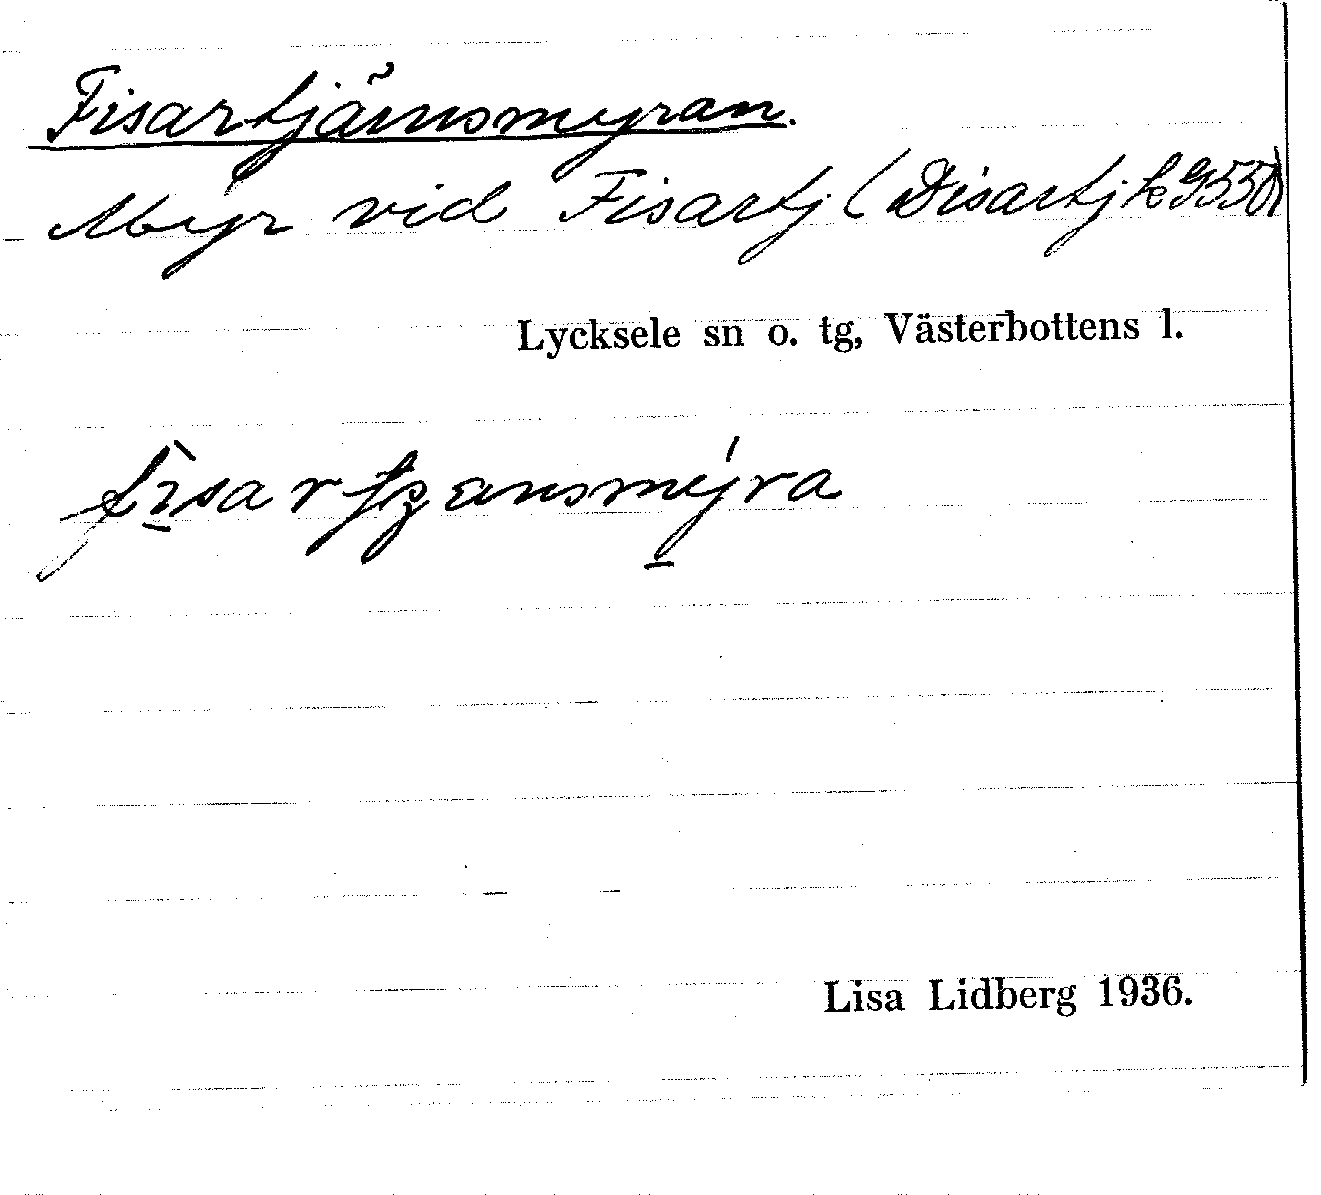 Fisartjärnsmyran.
Myr vid Fisartj (Disartj k 9550)
Lycksele sn o. tg, Västerbottens l.
Lisa Lidberg 1936.